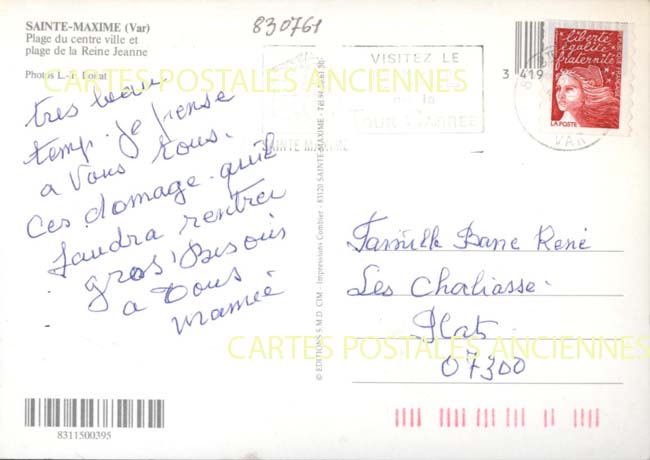 SAINTE-MAXIME (Var)
Plage du centre ville et
plage de la Reine Jeanne
830761
VISITEZ LE
de la
TOUR CARREE
SAINTE MAXIME
VAR
3 419
liberté
égalité
fraternité
LA POSTE
CARTES POSTALES ANCIENNES
tres beau
temp. je pense
a Vous tous.
Ces domage quil
faudra rentrer
gros Bisous
a Tous
mamie
© EDITIONS S.M.D. CIM - Impressions Combier - 83120 SAINTE-MAXIME -
Famille Bane René
Les Chaliasse.
Plats
07300
CARTES POSTALES ANCIENNES
8311500395